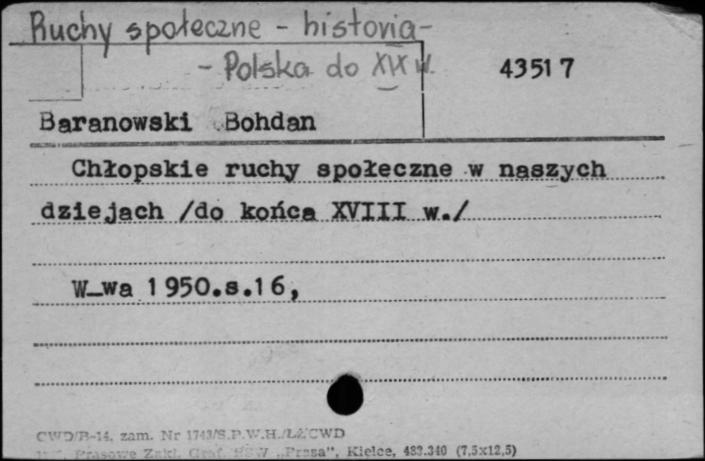 Ruchy społeczne - historia -
- Polska do XIX w.
43517
Baranowski Bohdan
Chłopskie ruchy społeczne w naszych
dziejach /do końca XVIII w./
W-wa 1950.s.16,
CWD/B-14, zam. Nr 1743/S.P.W.H./ŁŹCWD
Prasowe Zakł. Graf. RSW „Prasa", Kielce, 483.340 (7,5x12,5)